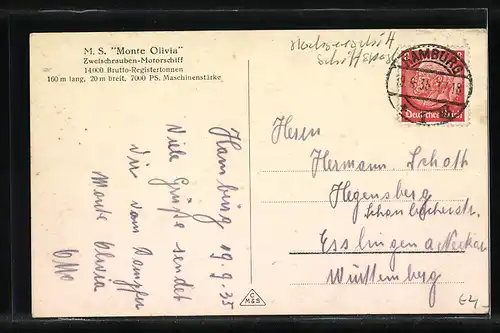 M. S. "Monte Olivia"
Zweischrauben-Motorschiff
14000 Brutto-Registertonnen
160 m lang, 20 m breit, 7000 PS. Maschinenstärke
HAMBURG
Deutsches Reich
Hamburg 19.9.35
Viele Grüße sendet
Dir vom Dampfer
Monte Olivia
Otto
Herrn
Hermann Schoth
Hegensberg
Esslingen a Neckar
Württemberg
C
M&S
€4,-